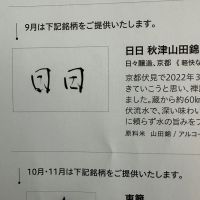 9月は下記銘柄をご提供いたします。
日日
日日 秋津山田錦
日々醸造、京都 《軽快な
京都伏見で2022年3
きていこうと思い、禅
ました。蔵から約60k
伏流水で、深い味わい
に頼らず水の旨みをフ
原料米 山田錦/アルコー
10月・11月は下記銘柄をご提供いたします。